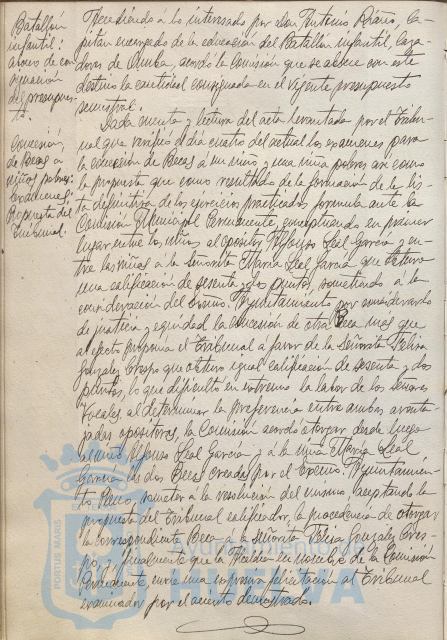 Batallón
infantil:
abono de con
signación
del presupues
to.
Accediendo á lo interesado por don Antonio Rioro, Ca-
pitán encargado de la educación del Batallón infantil, Caza-
dores de Omba, acordó la Comisión que se abone con este
destino la cantidad consignada en el vigente presupuesto
semestral.
Concesión
de Becas a
niños pobres:
Exámenes:
Propuesta del
Tribunal.
Dada cuenta y lectura del acta levantada por el Tribu-
nal que verificó el día cuatro del actual los exámenes para
la concesión de Becas á un niño y una niña pobres así como
la propuesta que como resultado de la formación de la lis-
ta definitiva de los ejercicios practicados formula ante la
Comisión Municipal Permanente, conceptuando en primer
lugar entre los niños al opositor Alfonso Leal García y en-
tre las niñas á la señorita María Leal García que obtuvo
una calificación de sesenta y dos puntos, sometiendo á la
consideración del Excmo. Ayuntamiento por considerarlo
de justicia y equidad la concesión de otra Beca más que
al efecto proponía el Tribunal á favor de la Señorita Felisa
González Crespo que obtuvo igual calificación de sesenta y dos
puntos, lo que dificultó en extremo la labor de los señores
Vocales al determinar la preferencia entre ambas aventa
jadas opositoras, la Comisión acordó otorgar desde luego
al niño Alfonso Leal García y á la niña María Leal
García las dos Becas creadas por el Excmo. Ayuntamien-
to Pleno, someter á la resolución del mismo, aceptando la
propuesta del Tribunal calificador, la procedencia de otorgar
la correspondiente Beca á la señorita Felisa González Cres-
po, y finalmente que la Alcaldía en nombre de la Comisión
Permanente envíe una expresiva felicitación al Tribunal
examinador por el acierto demostrado.
PORTUS MARIS
Ayuntamiento de
HUELVA